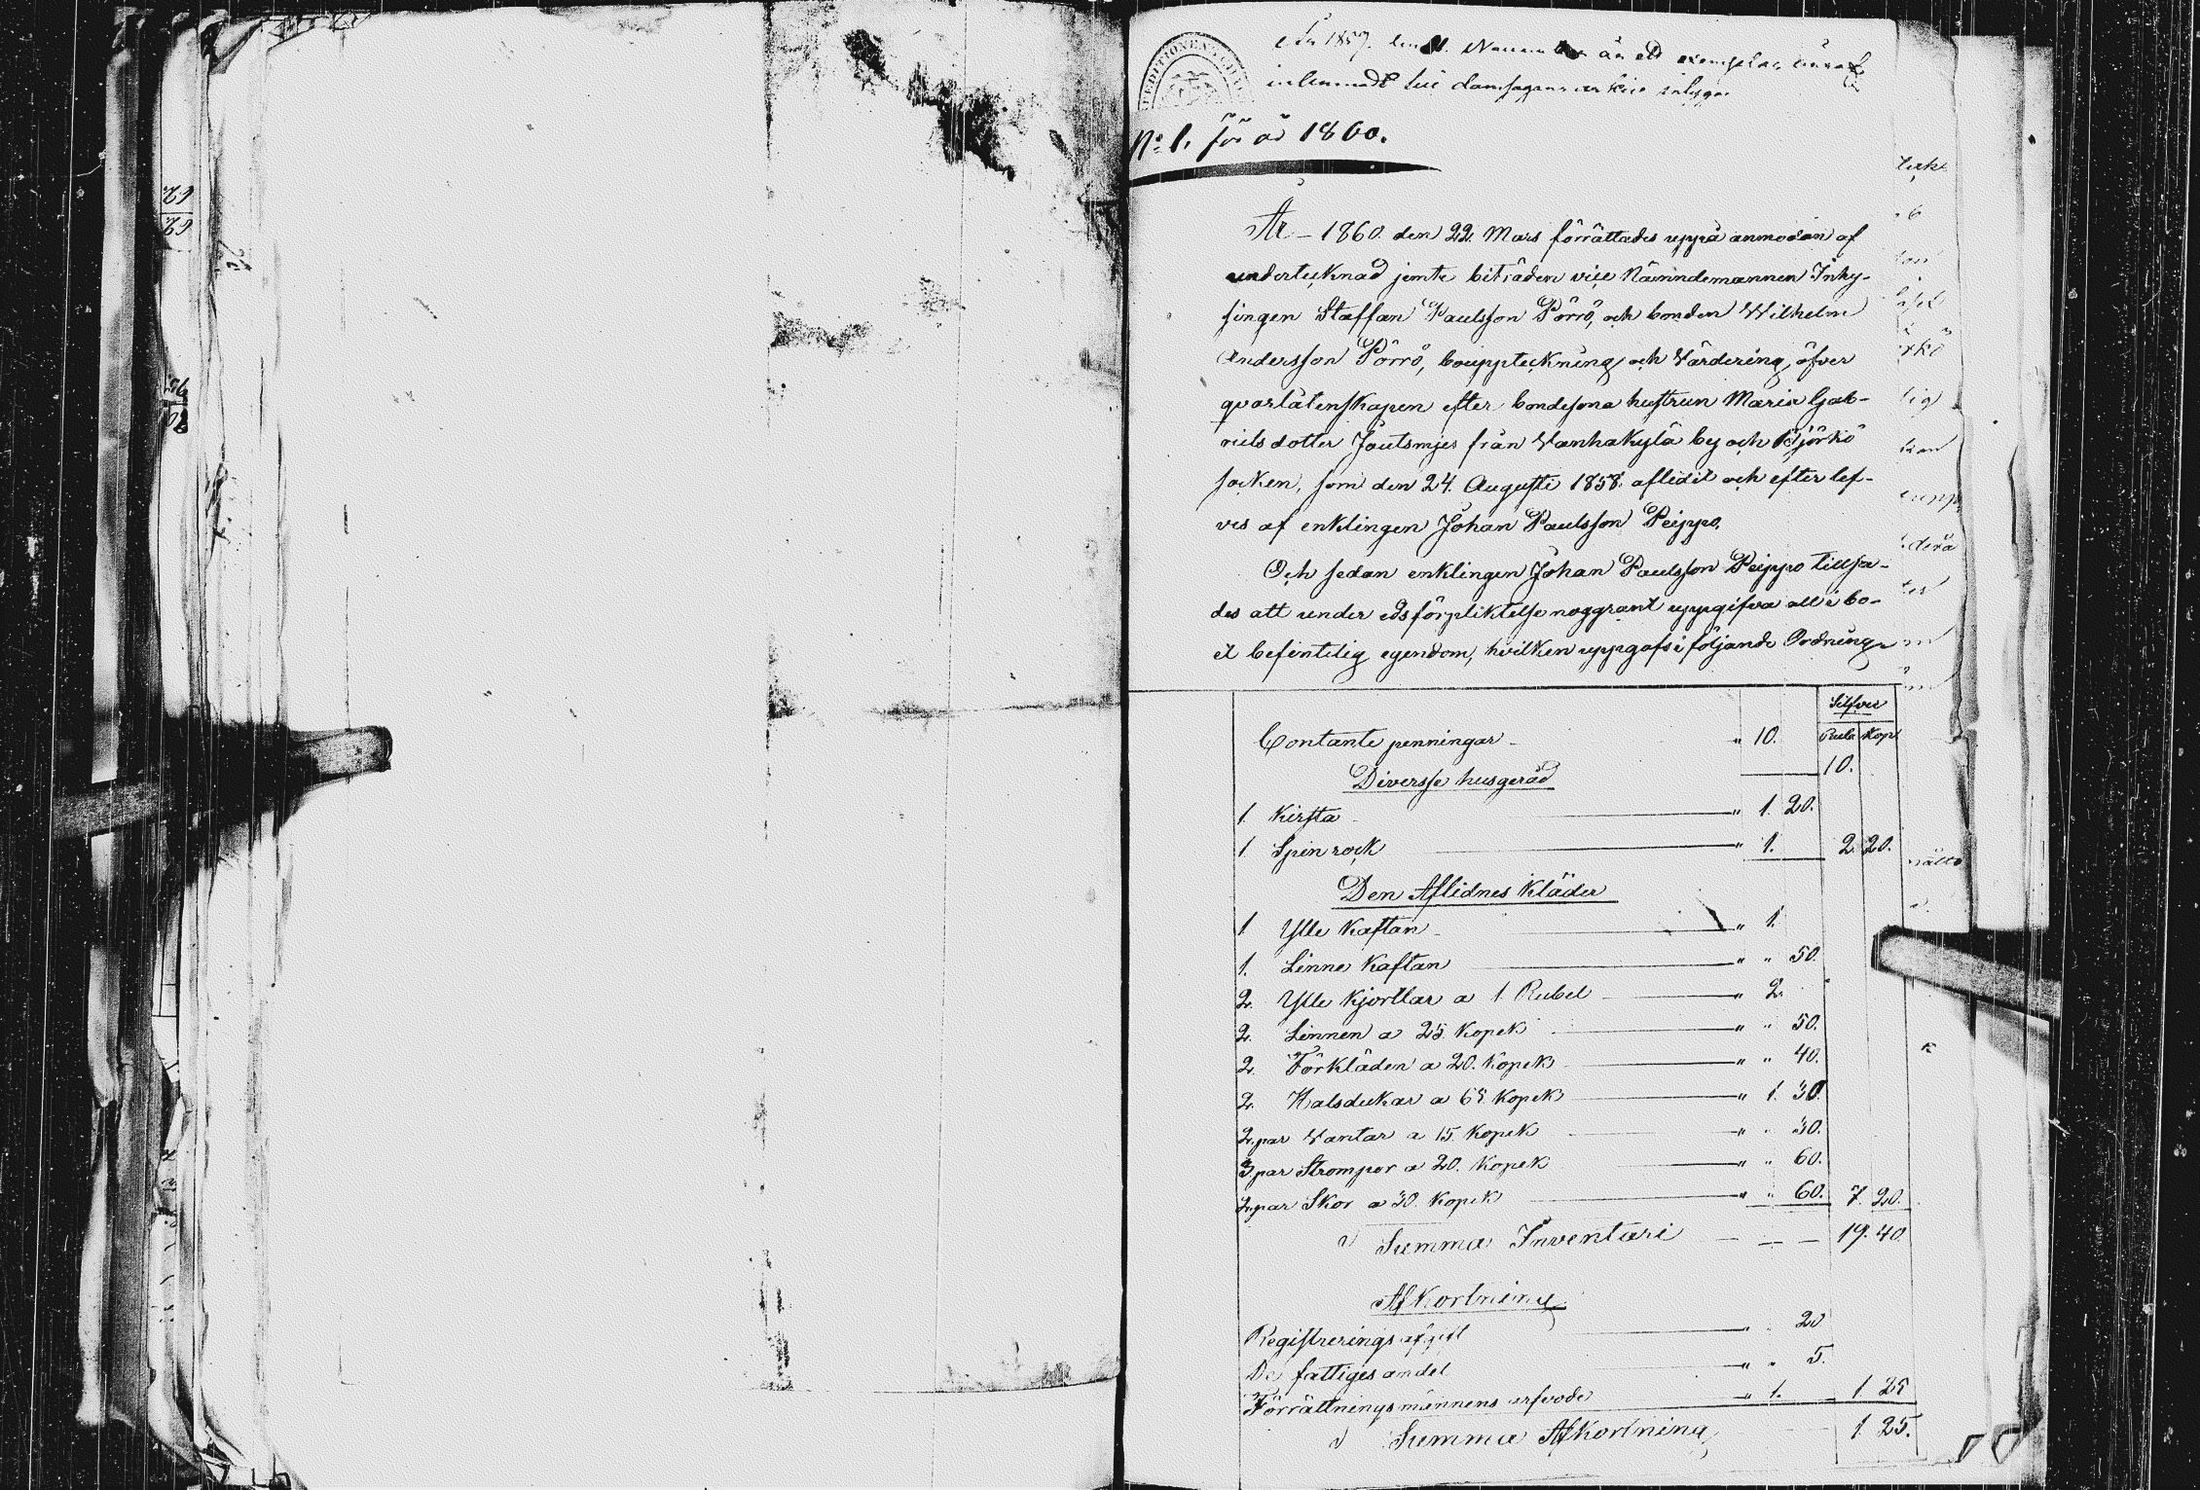 År 1857. den November är ett exemplar häraf
No 1. för år 1860.
År 1860. den 22. Mars förrättades uppå anmodan af
undertecknad jemte biträden vice Nämndemannen Inhy-
singen Staffan Paulsson Pörrö, och bonden Wilhelm
Andersson Pörrö, bouppteckning och Värdering, öfver
qvarlåtenskapen efter bondesona hustrun Maria Gab-
rielsdotter Joutsmjes från Vanhakylä by och Björkö
socken, som den 24. Augusti 1858. aflidit och efterlef-
ves af enklingen Johan Paulsson Peippo.
Och sedan enklingen Johan Paulsson Peippo tillsa-
des att under edsförpliktelse noggrant uppgifva all i bo-
et befintelig egendom, hvilken uppgafs i följande Ordning.
Silfver
Rub Kop
Contante penningar " 10.
10.
Diversse husgeråd
1. Kirsta " 1. 20.
1. Spinrock " 1. 2. 20.
Den Aflidnes Kläder
1. Ylle Kaftan " 1.
1. Linne Kaftan " " 50.
2. Ylle Kjortlar a 1 Rubel " 2.
2. Linnen a 25. Kopek " " 50.
2. Förkläden a 20. Kopek " " 40.
2. Halsdukar a 65. Kopek " 1. 30.
2. par Vantar a 15. Kopek " " 30.
3 par Strompor a 20. Kopek " " 60.
2. par Skor a 30. Kopek " " 60. 7. 20.
Summa Inventari 19. 40.
Afkortning
Registrerings afgift " " 20
De fattiges andel " " 5.
Förrättningsmännens arfvode " 1. 1 25
Summa Afkortning 1. 25.